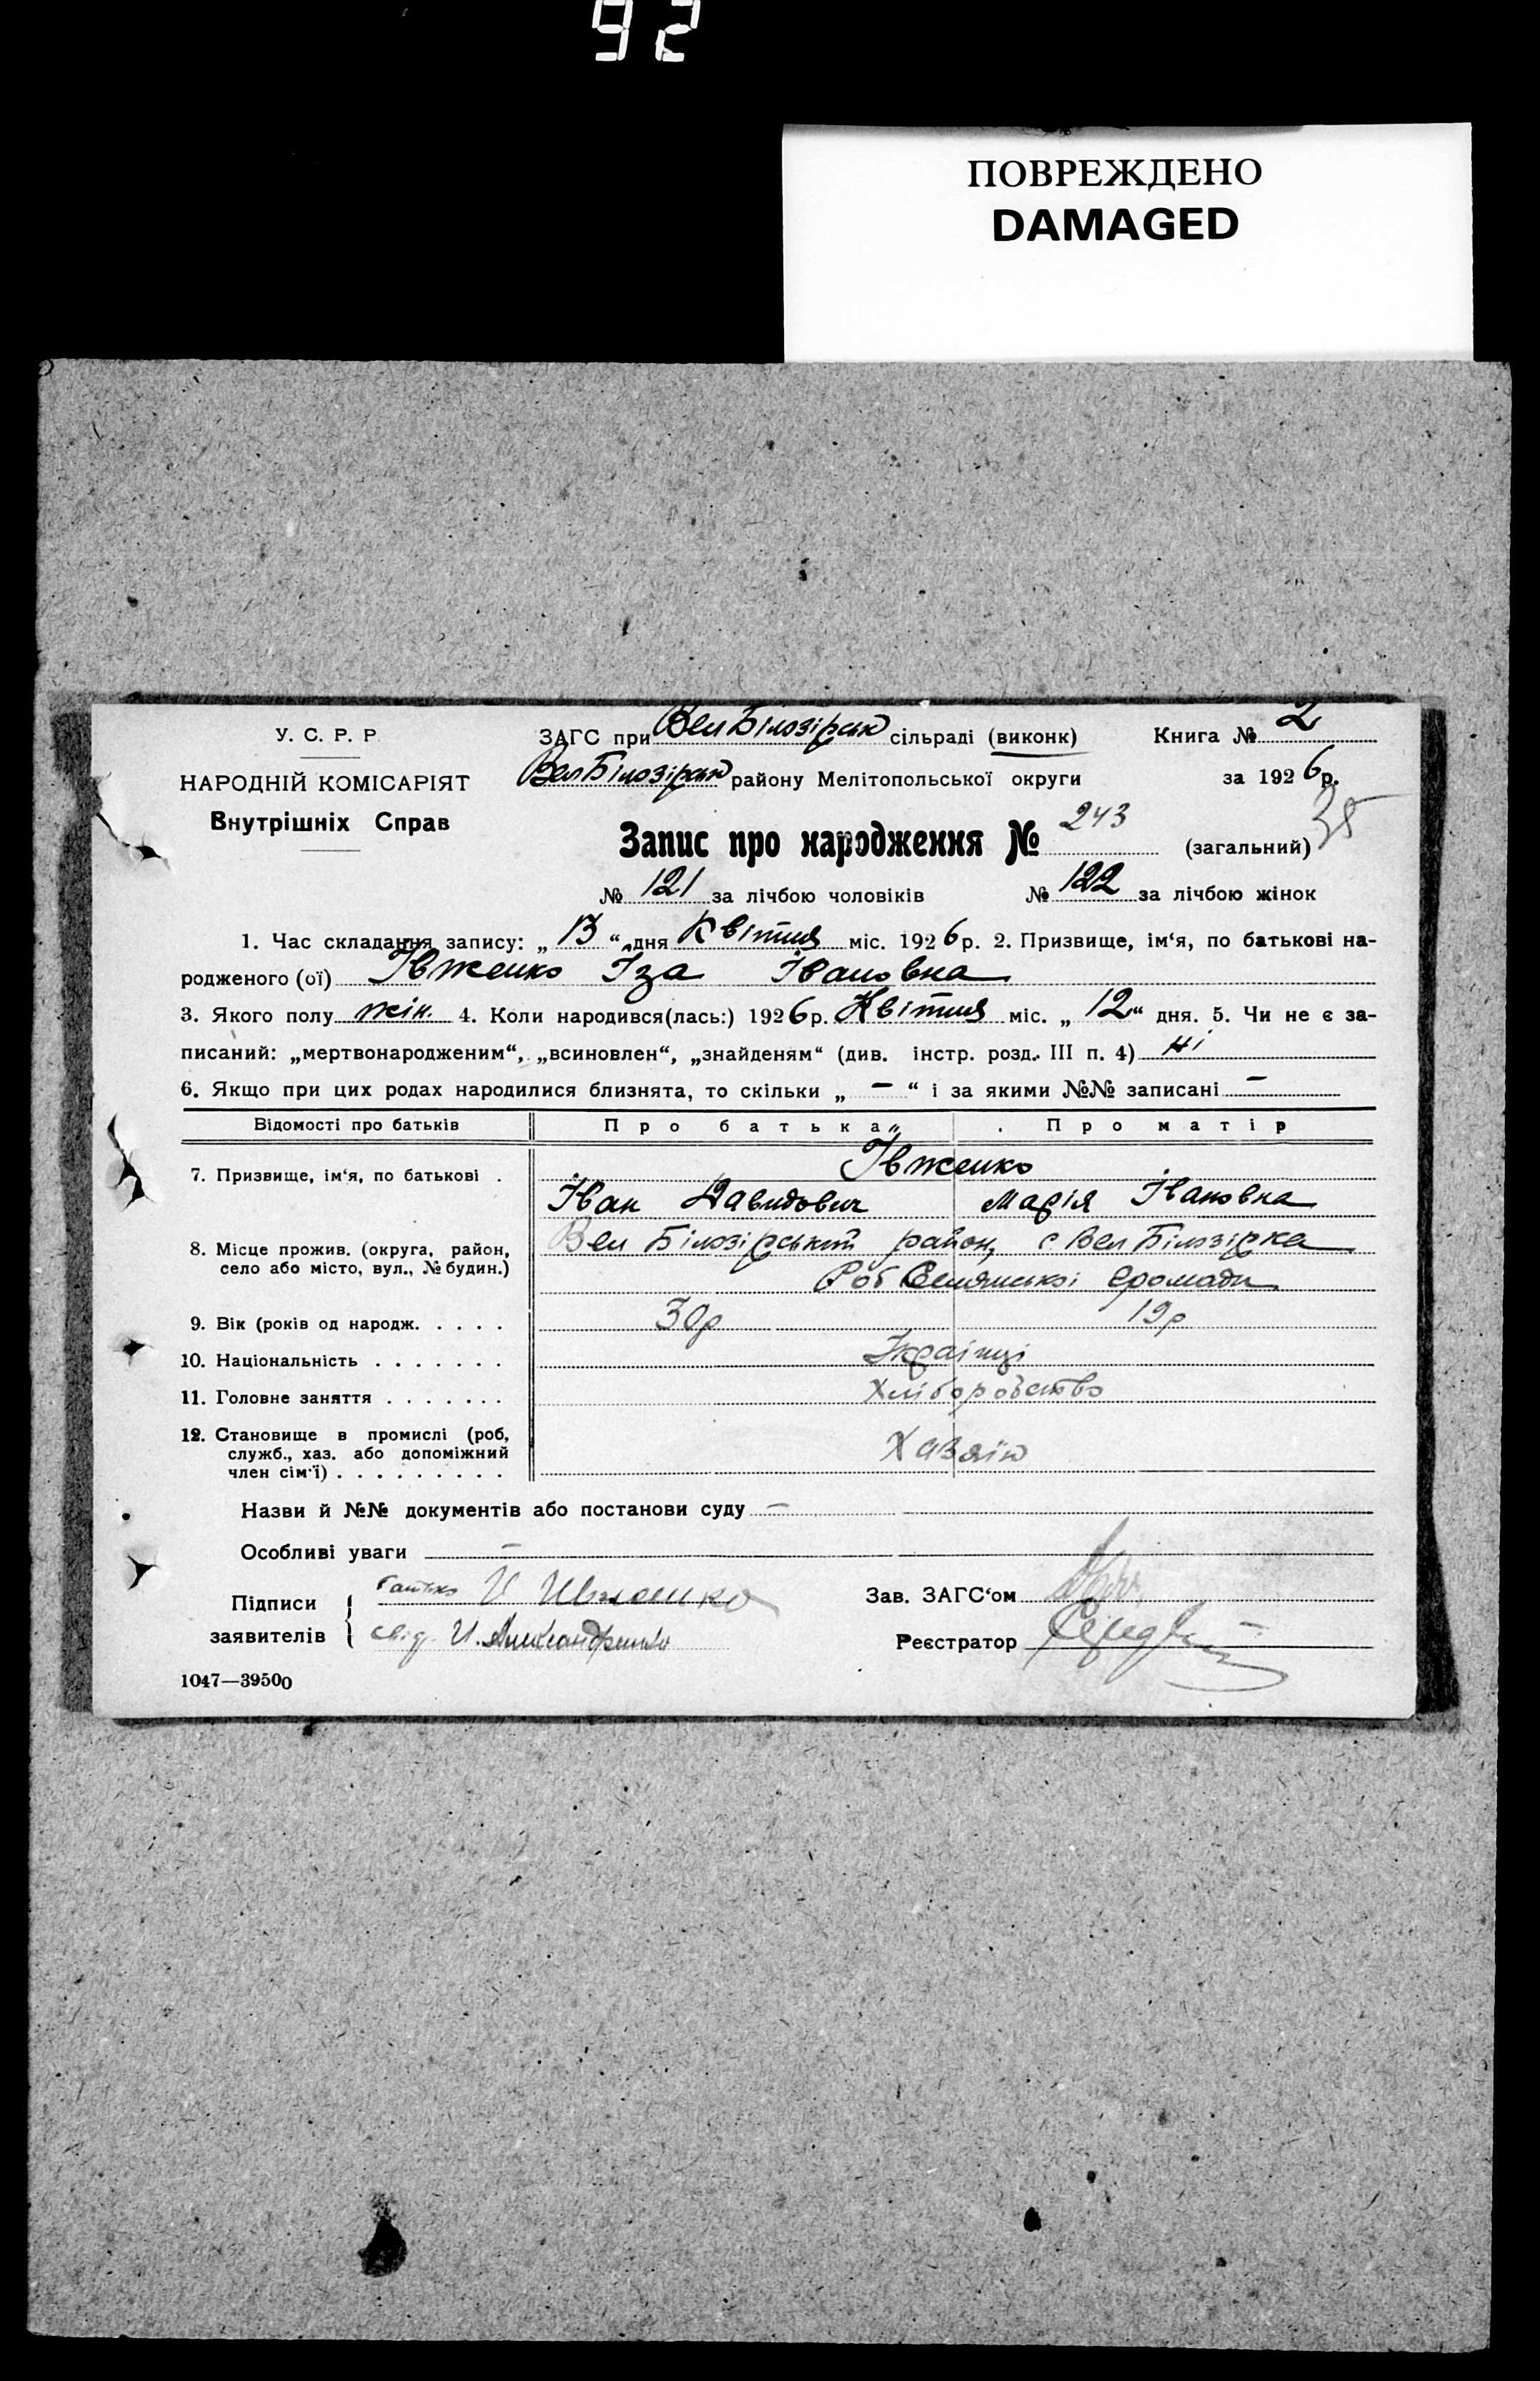 92
ПОВРЕЖДЕНО
DAMAGED
У. С. Р. Р
НАРОДНІЙ КОМІСАРІЯТ
Внутрішніх Справ
ЗАГС при Вел Білозірськ сільраді (виконк) Книга № 2
Вел Білозірськ району Мелітопольської округи за 1926р.
Запис про народження № 243 (загальний) 35
№ 121 за лічбою чоловіків № 122 за лічбою жінок
1. Час складання запису: „ 13 “ дня Квітня міс. 1926р. 2. Призвище, ім‘я, по батькові на-
родженого (ої) Івженко Іза Івановна
3. Якого полу жін. 4. Коли народився(лась:) 1926р. Квітня міс. „ 12 “ дня. 5. Чи не є за-
писаний: „мертвонародженим“, „всиновлен“, „знайденям“ (див. інстр. розд. III п. 4) ні
6. Якщо при цих родах народилися близнята, то скільки „ — “ і за якими №№ записані —
Відомості про батьків Про батька Про матір
7. Призвище, ім‘я, по батькові . Івженко
Іван Давидович Марія Івановна
8. Місце прожив. (округа, район, село або місто, вул., № будин.) Вел Білозірський район, с. Вел Білозірка
Роб Селянської громади
9. Вік (років од народж. . . . . 30р 19р
10. Національність . . . . . . . Українці
11. Головне заняття . . . . . . . Хліборобство
12. Становище в промислі (роб, служб., хаз. або допоміжний член сім‘ї) . . . . . . . . . Хазяїн
Назви й №№ документів або постанови суду —
Особливі уваги —
Підписи заявителів { батько И Ивженко
свід. И. Александренко
Зав. ЗАГС‘ом
Реєстратор
1047—39500